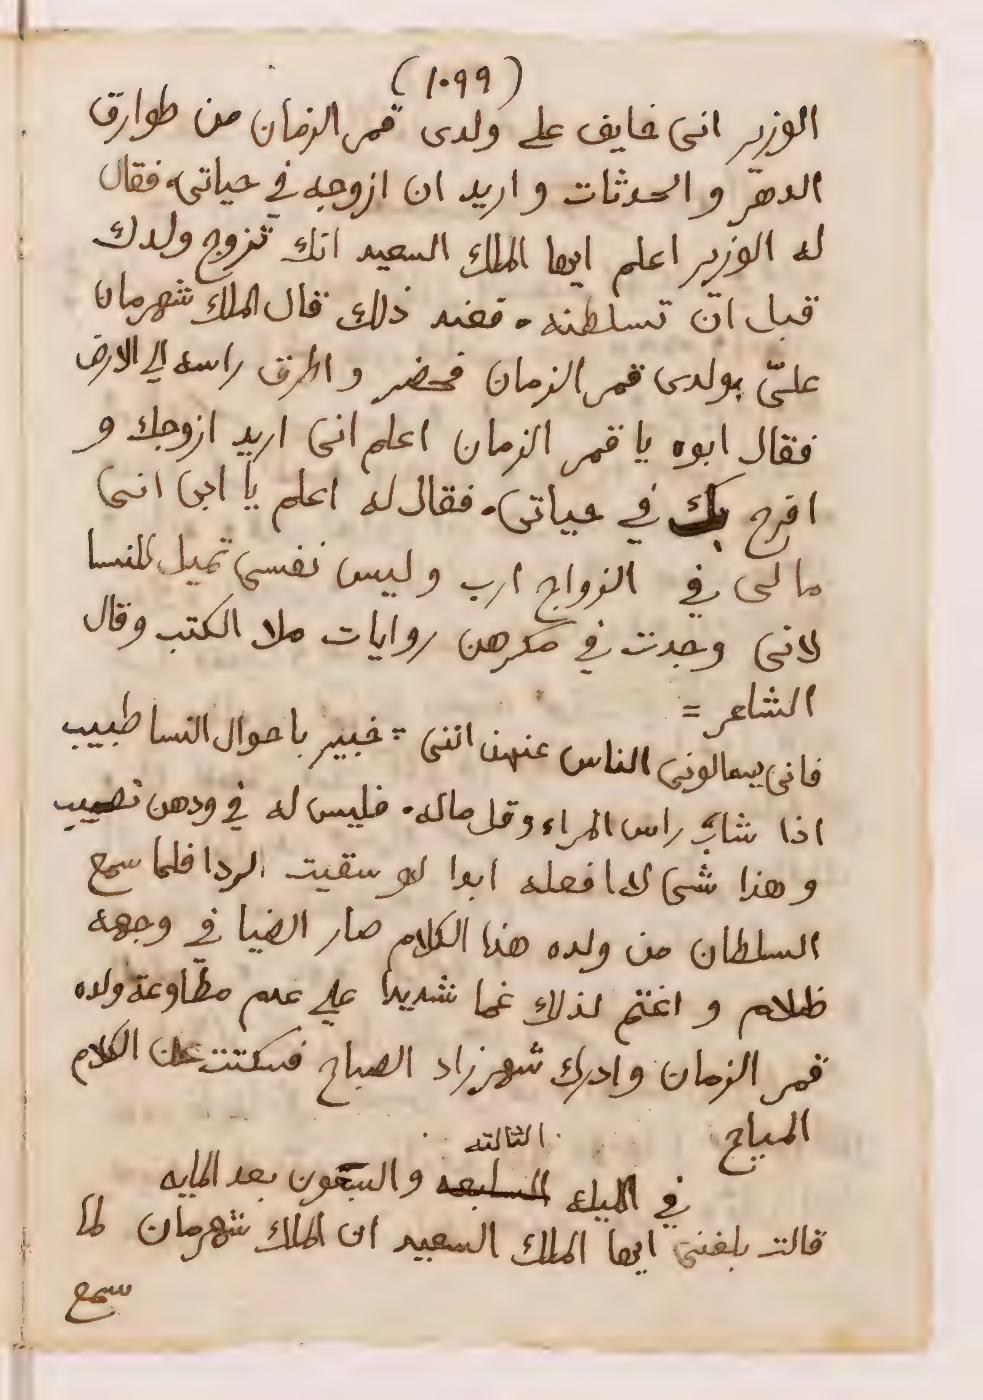 (١٠٩٩)
الوزير انى خايف على ولدى قمر الزمان من طوارق
الدهر و الحدثات و اريد ان ازوجه في حياتى، فقال
له الوزير اعلم ايها الملك السعيد انك تزوج ولدك
قبل ان تسلطنه، فعند ذلك قال الملك شهرمان
علىّ بولدى قمر الزمان فحضر و اطرق راسه الى الارض
فقال ابوه يا قمر الزمان اعلم انى اريد ازوجك و
افرح بك في حياتى، فقال له اعلم يا ابى اننى
ما لى في الزواج ارب وليس نفسى تميل للنسا
لانى وجدت في مكرهن روايات ملا الكتب وقال
الشاعر =
فانى يسالونى الناس عنهن اننى = خبير باحوال النسا طبيب
اذا شاب راس المراء وقل ماله، فليس له في ودهن نصيب
و هذا شى لا افعله ابدا لو سقيت الردا فلما سمع
السلطان من ولده هذا الكلام صار الضيا في وجهه
ظلام و اغتم لذلك غما شديدا علي عدم مطاوعة ولده
قمر الزمان وادرك شهرزاد الصباح فسكتت عن الكلام
المباح
الثالثه
في الليلة السابعه و السبعون بعد المايه
قالت بلغنى ايها الملك السعيد ان الملك شهرمان لما
سمع